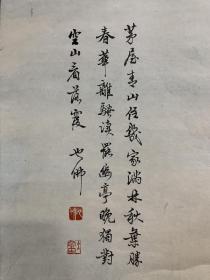 茅屋青山住几家满林秋叶胜
春华离骚读罢幽亭晚独对
空山看落霞 也佛